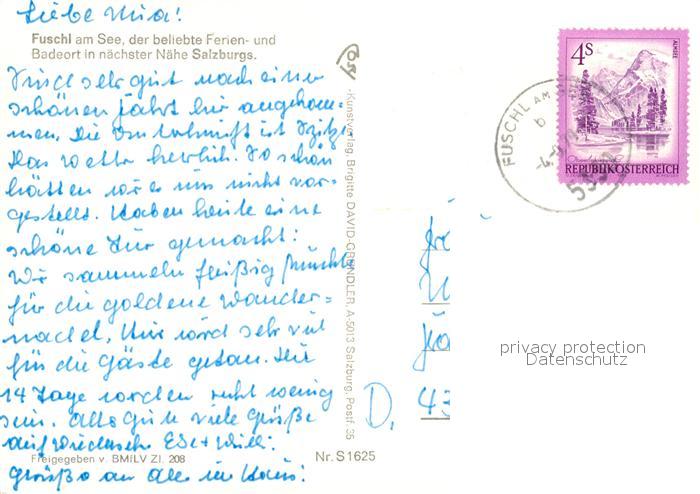 Liebe Mia!
Fuschl am See, der beliebte Ferien- und
Badeort in nächster Nähe Salzburgs.
Sind sehr gut nach einer
schönen Fahrt hier angekom-
men. Die Unterkunft ist Spitze
Das Wetter herrlich. So schön
hätten wir es uns nicht vor-
gestellt. Haben heute eine
schöne Tur gemacht.
Wir sammeln fleißig Punkte
für die goldene Wander=
nadel. Hier wird sehr viel
für die Gäste getan. Die
14 Tage werden recht wenig
sein. Alles Gute viele Grüße
auf Wiedersehn Else + Willi.
Freigegeben v. BMfLV Zl. 208
Grüße an Alle im Haus!
Nr. S 1625
Kunstverlag Brigitte DAVID-GRÜNDLER, A-5013 Salzburg, Postf. 35
4S
ALMSEE
REPUBLIK ÖSTERREICH
FUSCHL AM
b
D.
43
privacy protection
Datenschutz